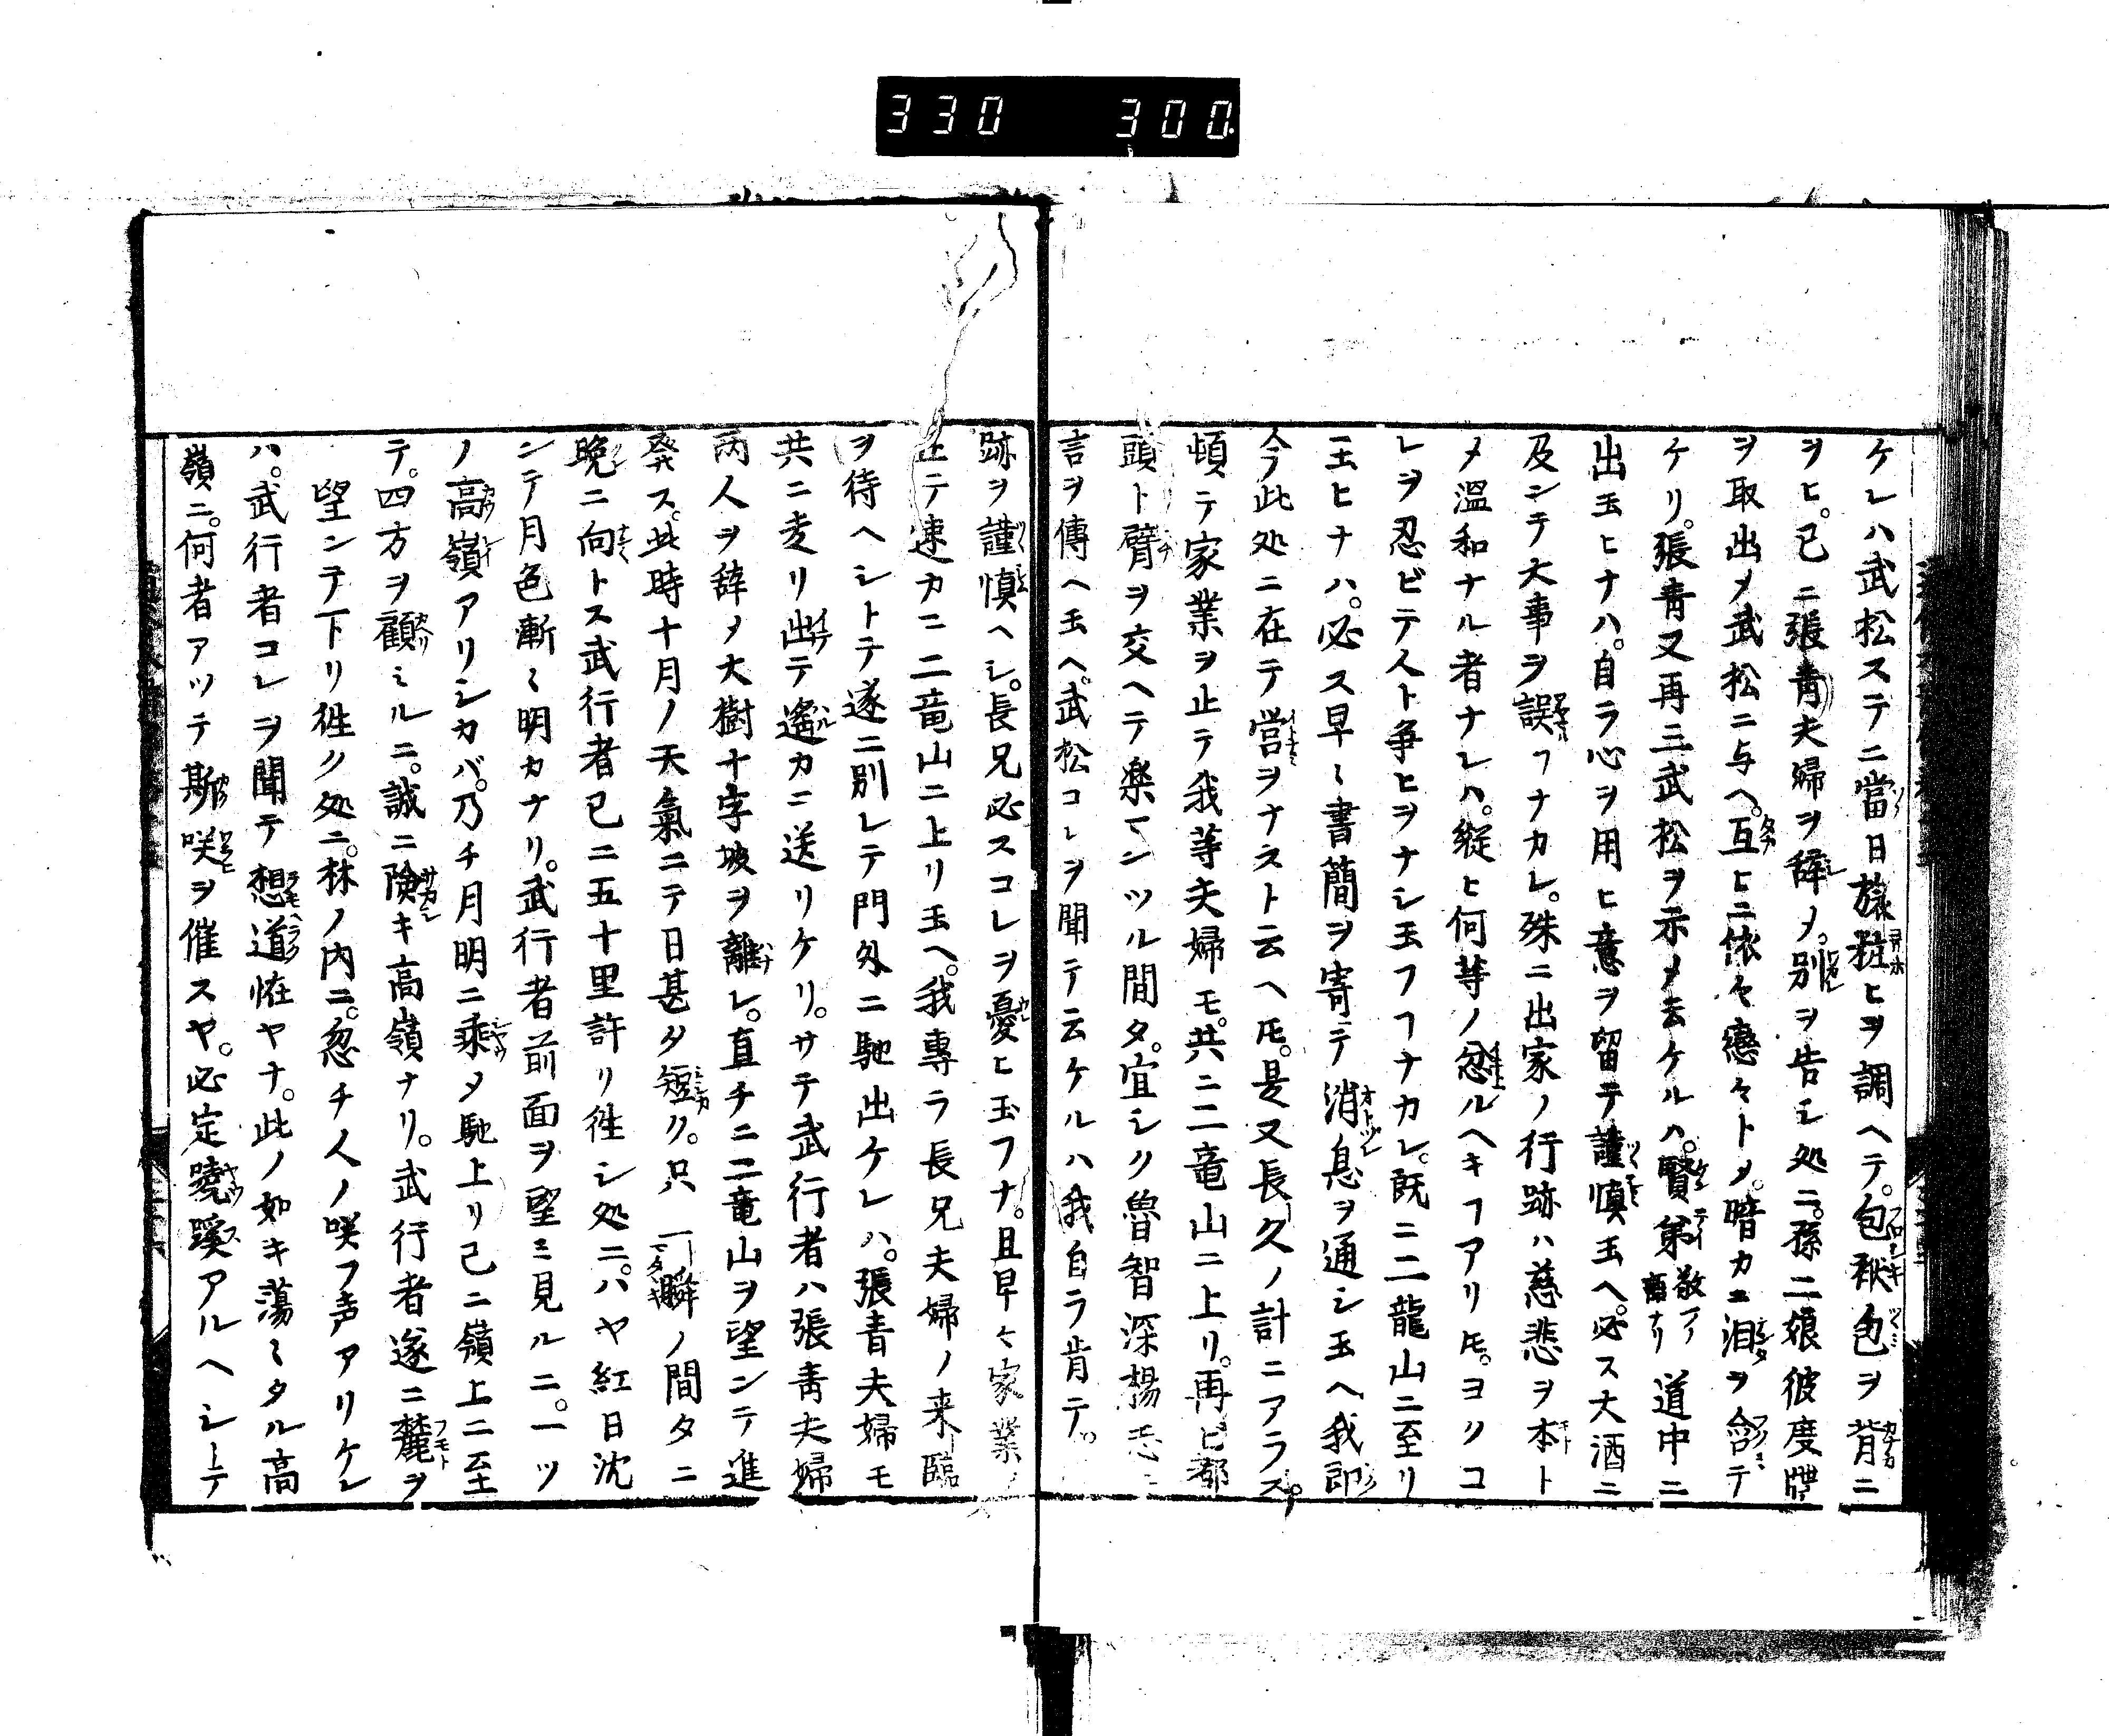 330 300
ケレハ武松ステニ當日旅粧ヒヲ調ヘテ。包袱包ヲ背ニ
ヲヒ。已ニ張青夫婦ヲ辞メ。別ヲ告シ処ニ。孫二娘彼度牒
ヲ取出メ武松ニ与ヘ。互ヒニ依々戀々トメ。暗カニ泪ヲ含テ
ケリ。張青又再三武松ヲ示メ云ケルハ。賢弟道中ニ
出玉ヒナハ。自ラ心ヲ用ヒ意ヲ留テ謹慎玉ヘ。必ス大酒ニ
及ンテ大事ヲ誤ヿナカレ。殊ニ出家ノ行跡ハ慈悲ヲ本ト
メ溫和ナル者ナレハ。縦ヒ何等ノ忿ルヘキヿアリ𪜈。ヨクコ
レヲ忍ビテ人ト争ヒヲナシ玉フヿナカレ。既ニ二龍山ニ至リ
玉ヒナハ。必ス早〻書簡ヲ寄テ消息ヲ通シ玉ヘ我即
今此処ニ在テ営ヲナスト云ヘ𪜈。是又長久ノ計ニアラス。
頓テ家業ヲ止テ我等夫婦モ。共ニ二竜山ニ上リ。再ヒ都
頭ト臂ヲ交ヘテ楽マンツル間タ。宜シク魯智深楊志ニ
言ヲ傳ヘ玉ヘ。武松コレヲ聞テ云ケルハ我自ラ肯テ。
跡ヲ謹慎ヘシ。長兄必スコレヲ憂ヒ玉フナ。且早々家業ノ
止テ速カニ二竜山ニ上リ玉ヘ。我專ラ長兄夫婦ノ来臨
ヲ待ヘシトテ遂ニ別レテ門外ニ馳出ケレハ。張青夫婦モ
共ニ走リ出テ遙カニ送リケリ。サテ武行者ハ張青夫婦
両人ヲ辞メ大樹十字坡ヲ離レ。直チニ二竜山ヲ望ンテ進
発ス。此時十月ノ天氣ニテ日甚タ短ク。只一瞬ノ間タニ
晩ニ向トス武行者已ニ五十里許リ徃シ処ニ。ハヤ紅日沈
ンテ月色漸〻明カナリ。武行者前面ヲ望ミ見ルニ。一ツ
ノ高嶺アリシカバ。乃チ月明ニ乘タ馳上リ已ニ嶺上ニ至
テ。四方ヲ顧ミルニ。誠ニ險キ高嶺ナリ。武行者遂ニ麓ヲ
望ンテ下リ徃ク処ニ。林ノ内ニ。忽チ人ノ咲フ声アリケレ
ハ。武行者コレヲ聞テ想道恠ヤナ。此ノ如キ蕩〻タル高
嶺ニ。何者アッテ斯咲ヲ催スヤ。必定蹺蹊アルヘシトテ